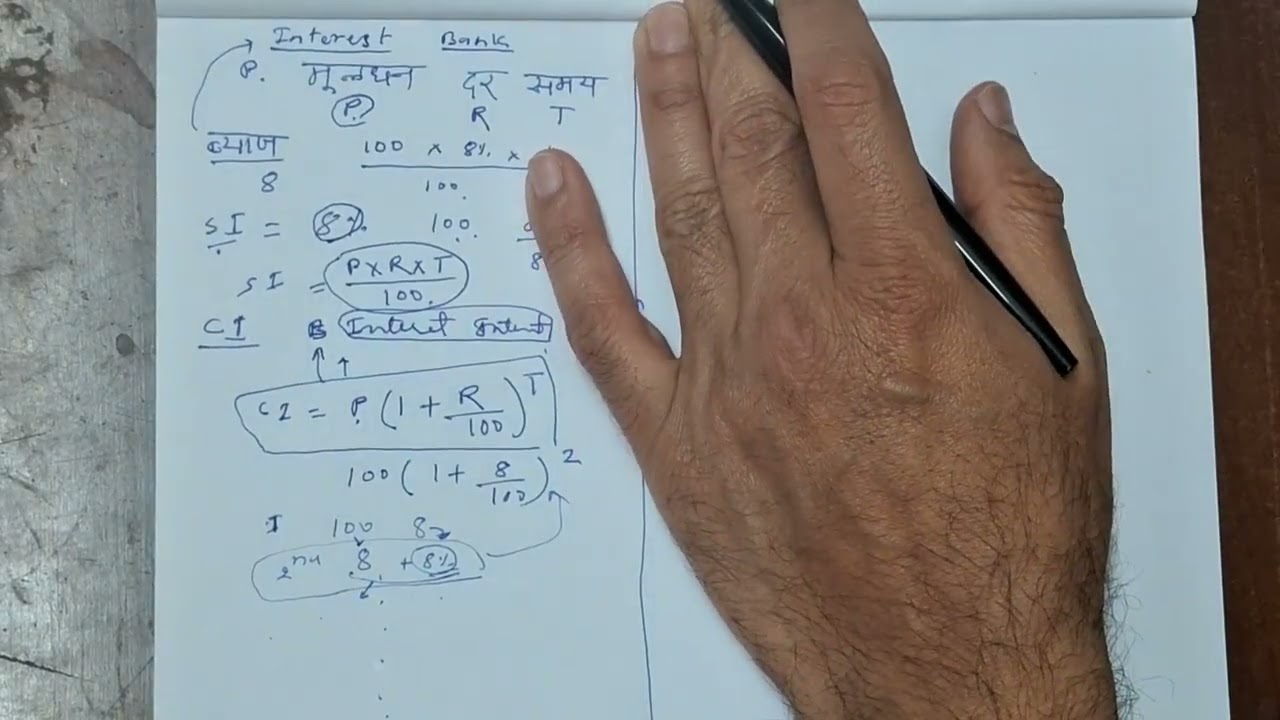 Interest Bank
P. मूलधन दर समय
P. R T
ब्याज 100 x 8% x
8 100.
SI = 8% 100.
8
SI = PxRxT
100.
CI Interest
CI = P. (1 + R/100)^T
100 (1 + 8/100)^2
I 100 8
2nd 8 + 8%